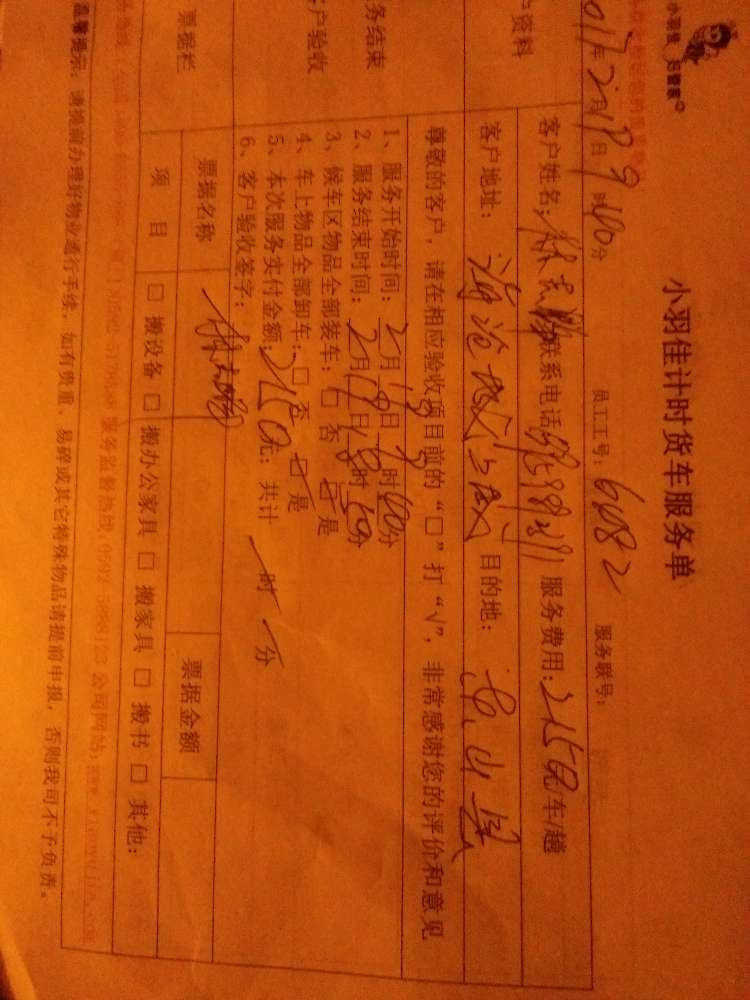 小羽佳 好管家
小羽佳计时货车服务单
2月19日9时40分 员工工号: 6082 服务联号:
客户资料
客户姓名: 林志 联系电话 服务费用: 2150元/车/趟
客户地址: 海沧 目的地: 东山县
服务结束
客户验收
尊敬的客户，请在相应验收项目前的“□”打“√”，非常感谢您的评价和意见
1、服务开始时间: 2月19日9时40分
2、服务结束时间: 2月19日 时 分
3、候车区物品全部装车: □ 否 □ 是
4、车上物品全部卸车: □ 否 □ 是
5、本次服务实付金额: 2150元; 共计 时 分
6、客户验收签字: 林志
票据栏
票据名称 票据金额
项 目 □ 搬设备 □ 搬办公家具 □ 搬家具 □ 搬书 □ 其他:
服务监督热线: 公司网站:
温馨提示: 请提前办理好物业通行手续，如有贵重、易碎或其它特殊物品请提前申报，否则我司不予负责。